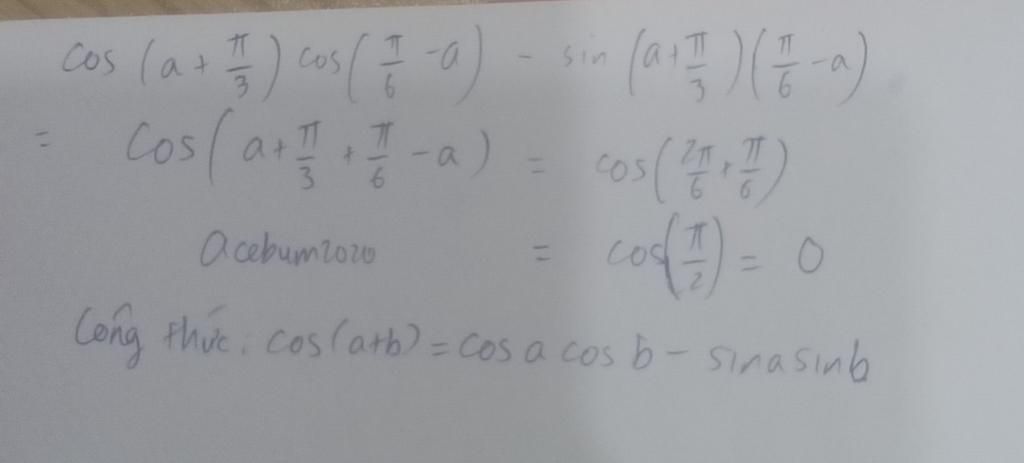 cos (a + π/3) cos(π/6 - a) - sin (a + π/3)(π/6 - a)
= cos(a + π/3 + π/6 - a) = cos(2π/6 + π/6)
acebum2020 = cos(π/2) = 0
Công thức: cos(a+b) = cos a cos b - sin a sin b